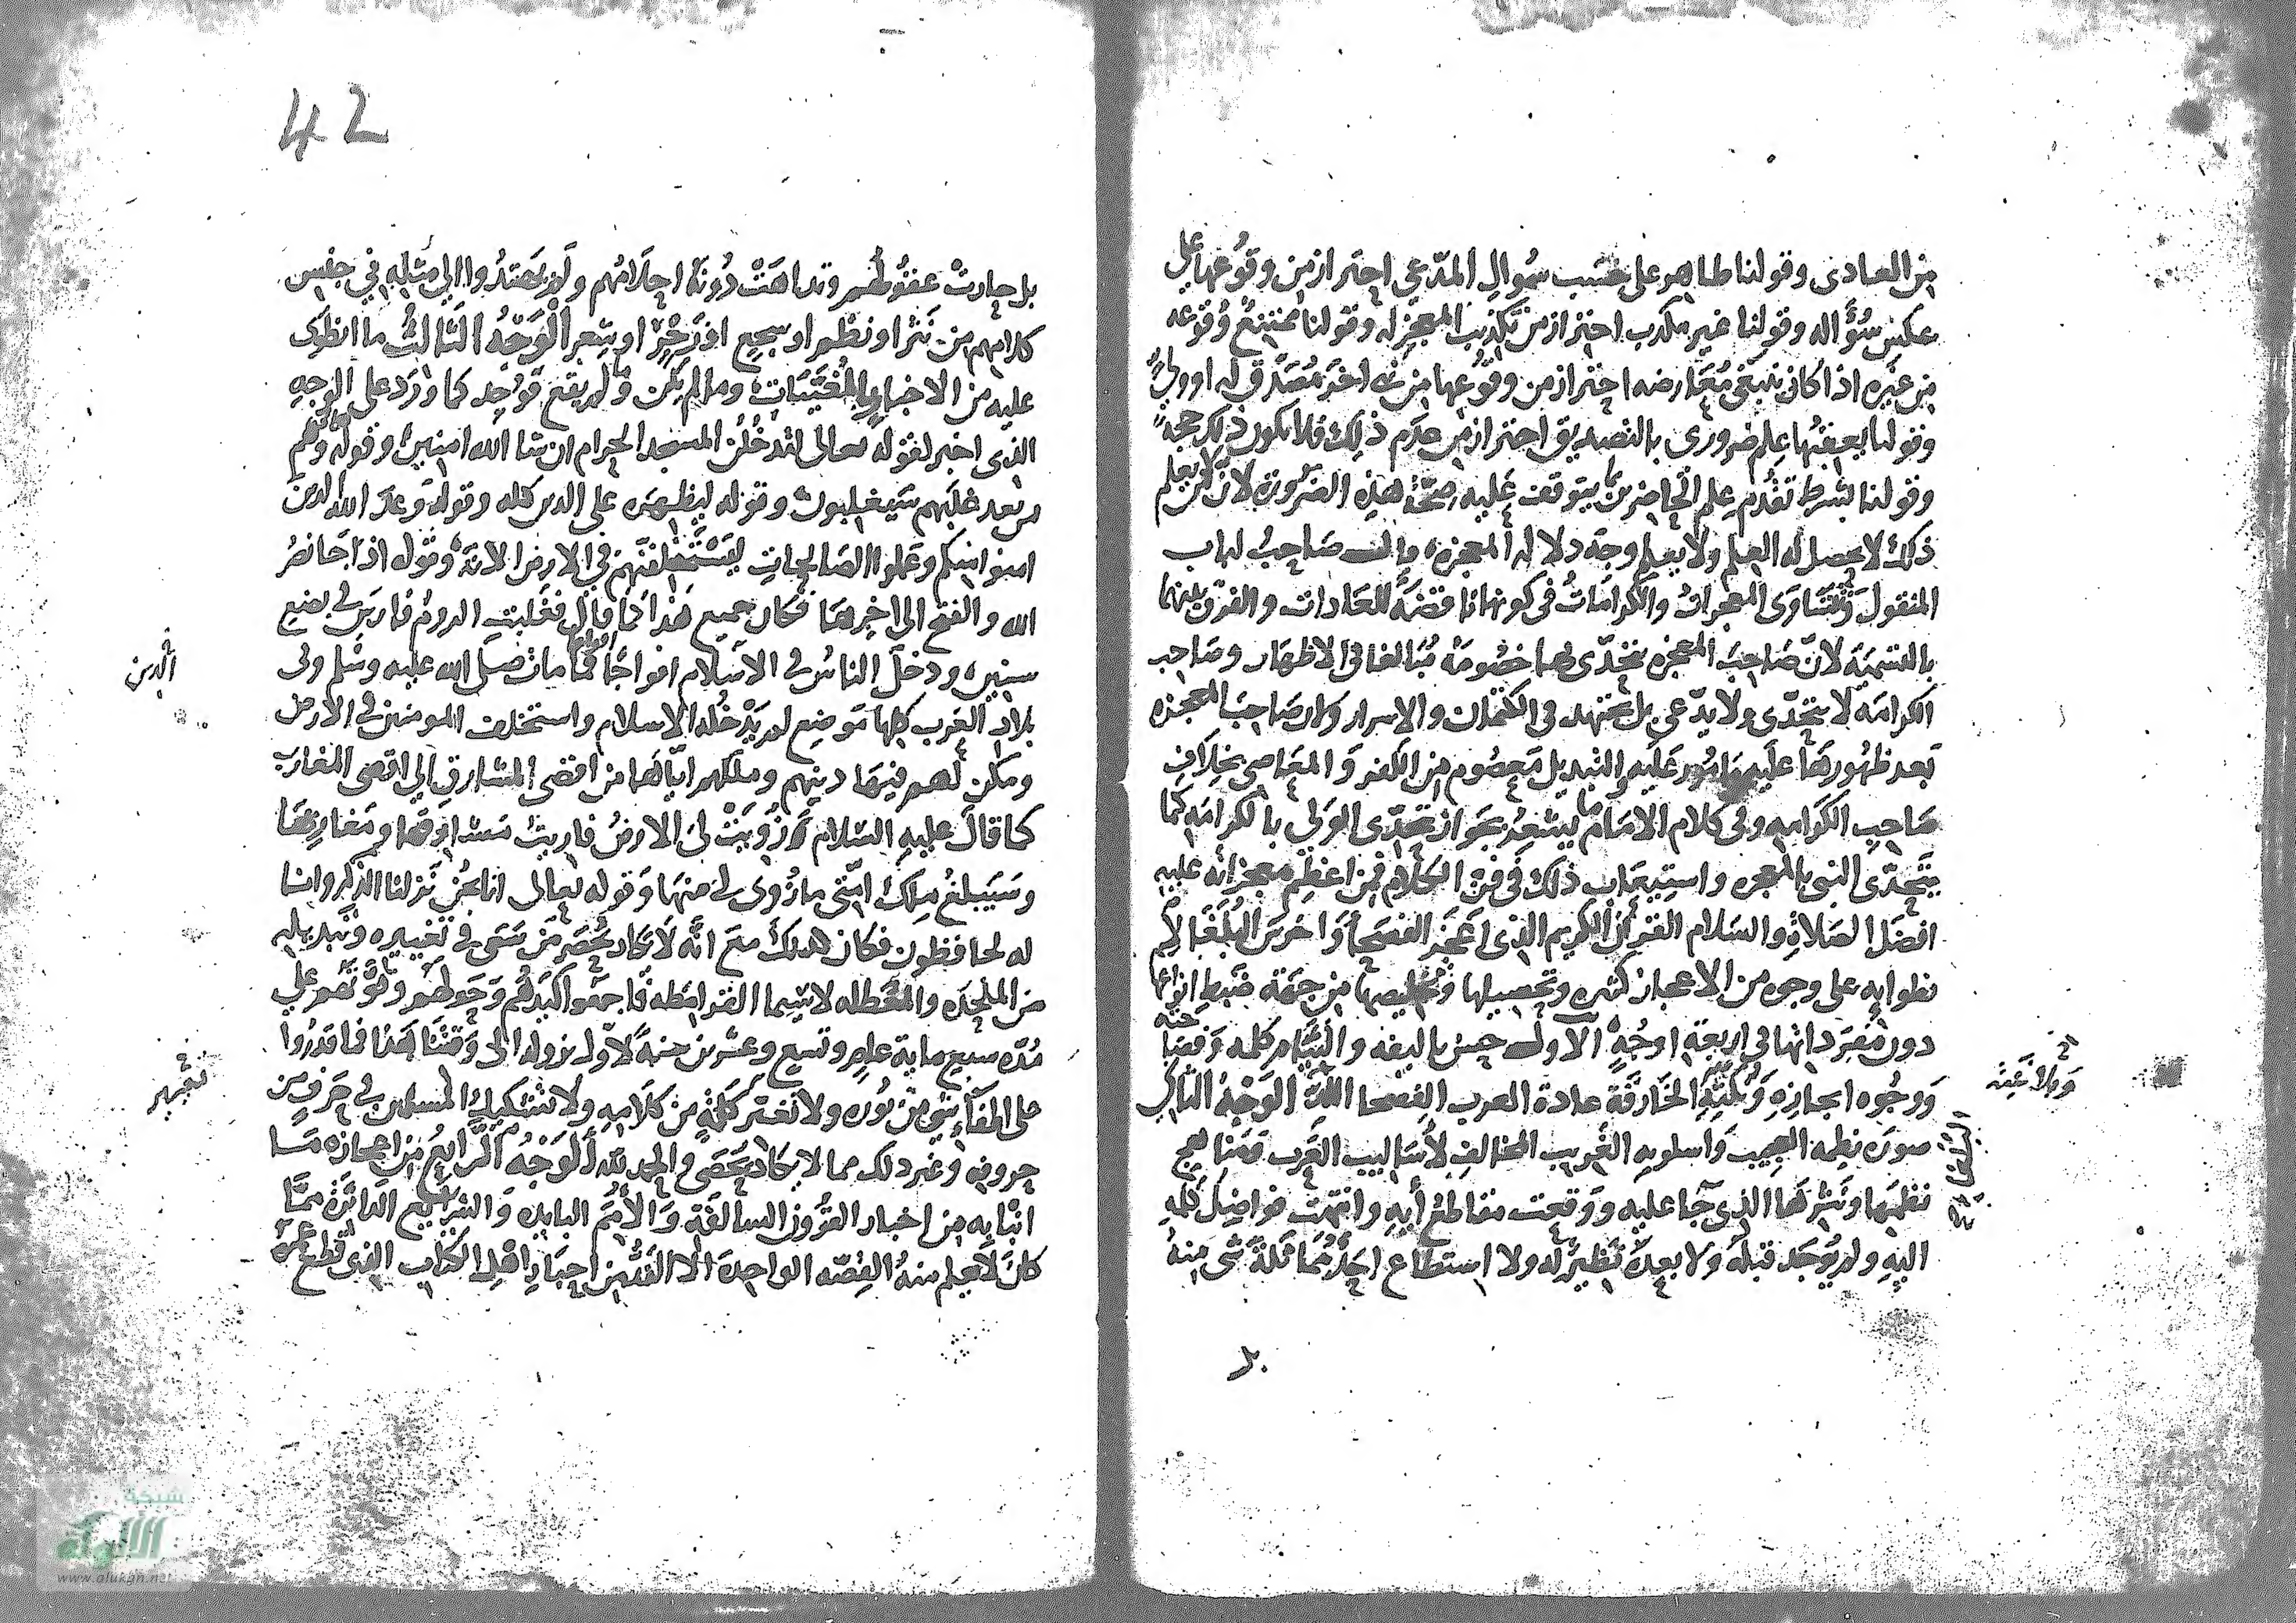 من العادى وقولنا ظاهر على حسب سُوال المدّعى احتراز من وقوعها على
عكس سُؤاله وقولنا غير مكذب احتراز من تكذيب المعجز له وقولنا ممتنعٌ وُقوعه
من غيره اذا كان يبتغى مُعَارضه احتراز من وقُوعها من نبى اخر مُصَدق له او وولىٍّ
وقولنا يعقبُها علم ضرورى بالتصديق احتراز من عدَم ذلِك فلا يكون ذلك حجةً
وقولنا بشرط تقدُم علم الحاضرين بما يتوقف عليه صحّة هَذِهِ الضرُورَة لانّ من لا يعلم
ذلك لا يحصل له العلم ولا يعلم وجه دلالة المعجزه قال صَاحِبُ لباب
المنقول وَتتسَاوَى المعجراتُ والكَرامَاتُ فى كونها ناقضةً للعَادات والفرق بينهما
بالتسميَة لانّ صَاحِبَ المعجزه يتحدّى بها خصُومَهُ مُبَالغا فى الاظهَار وصَاحِب
الكرامَة لا يتحَدّى ولا يدّعى بل يجتهد فى الكتمَان والاسرار وكان صَاحبَ المعجزه
بَعد ظهُورهَا عليه مامُور عَليه التبديل مَعصُوم من الكفر وَالمعَاصى بخلَافِ
صَاحِبِ الكرامه وفى كلام الامَام ما يُشعِرُ بجَواز تحَدّى الوَلى بالكرامَه كَمَا
يتَحدّى النبى بالمعجره واستيعَاب ذلك فى فنّ الكَلَام فمن اعظَم معجزاته عليه
افضَل الصَلاةِ والسَلام القرآن الكريم الذى اعجَز الفصحَا وَاخرَسَ البُلَغَا لِمَ
نطوايه على وجوه من الاعجاز كثيره وتحصيلها وتلخيصها من جهَة ضَبط انواعها
دون مفرَداتها فى اربعَة اوجُهٍ الاول حسن تاليفه والتيَام كلمه وَفصَاحته
وَوجُوه ايجازِه وَبَلاغَتِهِ الخَارقَة عادة العرب الفصحا اللُدّ الوَجْهُ الثانى
صورَة نظمه العجيبَ وَاسلوبه الغَريب المخالفِ لأسَاليب العَرَب ومَناهج
نظمهَا وَنَثرهَا الذِى جَا عليه ووَقعَت مقاطعُ أيهِ وانتهَت فواصِلُ كلمه
اليهِ ولم يُوجَد قبلهُ وَلا بعدَهُ نَظيرٌ له ولا استطاع احَدٌ مُمَاثلَةَ شَى مِنهُ
وَبَلاغَتِه
البلغا صح
بل
42
بل حارتْ عقُولهُم وتداهَتْ دُونهُ احلَامُهم وَلم يَهتدُوا الى مثله فى جنس
كلامهم من نَثر او نظم او سجع اورَجزٍ او شِعر الْوَجْهُ الثَالثُ ما انطوى
عليه من الاخبار بالمُغَيّبَات ومَا لم يكُن ولم يقع فوُجِد كما وَرَد على الوجهِ
الذى اخبر لقوله تعالى لتدخُلُن المسجد الحرَام ان شا الله امنين وقوله وهُم
من بعد غلبهم سَيغلبون وقوله ليظهرَه على الدين كله وقوله وَعَد الله الذين
امنوا منكم وَعَملُوا الصَالحات ليَسْتخلفنَّهم فى الارض الايَة وقوله اذا جَا نصُر
الله والفتح الى اخِرهَا فكان جميع هَذا كمَا قال فغَلبتِ الرومُ فارِس فى بضع
سنين ودخلَ الناسُ فى الاسلَام افوَاجًا فما مات صلى الله عليه وسلم وفى
بلاد العَرب كلها مَوضع لم يَدْخُله الاسلام واستخلف المومنين فى الارض
ومكّن لهم فيهَا دينهم وملكهم ايّاهَا من اقصى المشارق الى اقصى المغارب
كما قالَ عليه السَّلام زُوِيَتْ لىَ الارضُ فاريتُ مَشارقها ومَغاربهَا
وسَيَبلغ مِلك امّتى مازُوى لى منهَا وَقوله تعالى انا نحنُ نَزلنا الذِّكر وانا
له لحافظون فكان كذلك معَ انَّه لا يَكاد يُحصَر مَن سَعَى فى تغييره وتبديله
من الملحدَه والمُعَطله لاسيما القرامطه فاجمَعُوا كيدَهُم وَحَولهُم وَقُوَّتَهم على
مُدّه سبع ماية عام وتسع وعشرين سنةً لاوّل نزوله الى وقتنا هَذا فما قدرُوا
على اطفَاء شى من نُوره ولا تغيير كَلمَةٍ من كَلَامِهِ ولا تشكيكِ المسلمين فى حَرفٍ من
حروفه وغير ذلك مما لا يكاد يُحصَى والحمد لله الْوَجْهُ الرَّابعُ من اعجازه مَا
انبا به من اخبار القرُون السالفَة وَالاُمَم البايده والشرايع الدَاثرَة ممَّا
كانَ لا يَعلم منهُ القِصّه الواحِدَة الا الفَذّ من احبَار اهْل الكتاب الذى قطع عمره
الذين
تغيير
شبكة
الألوكة
www.alukah.net